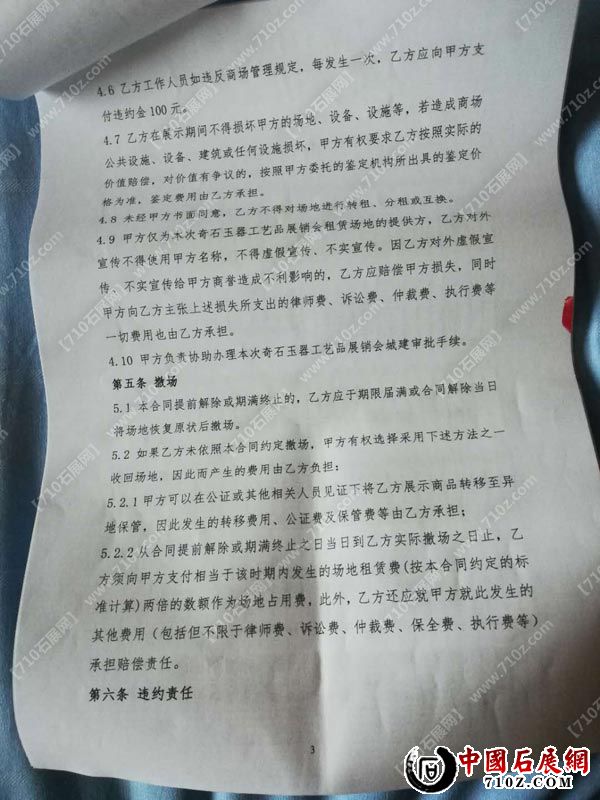 4.6 乙方工作人员如违反商场管理规定，每发生一次，乙方应向甲方支
付违约金100元。
4.7 乙方在展示期间不得损坏甲方的场地、设备、设施等，若造成商场
公共设施、设备、建筑或任何设施损坏，甲方有权要求乙方按照实际的
价值赔偿，对价值有争议的，按照甲方委托的鉴定机构所出具的鉴定价
格为准，鉴定费用由乙方承担。
4.8 未经甲方书面同意，乙方不得对场地进行转租、分租或互换。
4.9 甲方仅为本次奇石玉器工艺品展销会租赁场地的提供方，乙方对外
宣传不得使用甲方名称，不得虚假宣传、不实宣传。因乙方对外虚假宣
传、不实宣传给甲方商誉造成不利影响的，乙方应赔偿甲方损失，同时
甲方向乙方主张上述损失所支出的律师费、诉讼费、仲裁费、执行费等
一切费用也由乙方承担。
4.10 甲方负责协助办理本次奇石玉器工艺品展销会城建审批手续。
第五条 撤场
5.1 本合同提前解除或期满终止的，乙方应于期限届满或合同解除当日
将场地恢复原状后撤场。
5.2 如果乙方未依照本合同约定撤场，甲方有权选择采用下述方法之一
收回场地，因此而产生的费用由乙方负担：
5.2.1 甲方可以在公证或其他相关人员见证下将乙方展示商品转移至异
地保管，因此发生的转移费用、公证费及保管费等由乙方承担；
5.2.2 从合同提前解除或期满终止之日当日到乙方实际撤场之日止，乙
方须向甲方支付相当于该时期内发生的场地租赁费(按本合同约定的标
准计算)两倍的数额作为场地占用费，此外，乙方还应就甲方就此发生的
其他费用（包括但不限于律师费、诉讼费、仲裁费、保全费、执行费等）
承担赔偿责任。
第六条 违约责任
3
中國石展網
710Z.COM
【710石展网】
www.710z.com